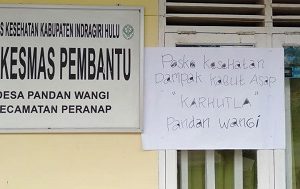 S KESEHATAN KABUPATEN INDRAGIRI HULU
KESMAS PEMBANTU
DESA PANDAN WANGI
KECAMATAN PERANAP
Posko kesehatan
Dampak Kabut Asap
"KARHUTLA"
Pandan wangi